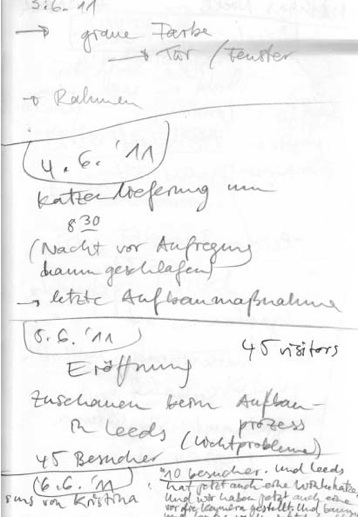 3.6.11
→ graue Farbe
→ Tür / Fenster
→ Rahmen
4.6.'11
Katzenlieferung um
8 30
(Nacht vor Aufregung
kaum geschlafen)
→ letzte Aufbaumaßnahme
5.6.'11
45 visitors
Eröffnung
Zuschauen beim Aufbau-
prozess
in Leeds (Lichtprobleme)
45 Besucher
6.6.'11
10 besucher. Und Leeds
sms von Kristina
hat jetzt auch eine
Und wir haben jetzt auch eine
vor die kamera gestellt. Und